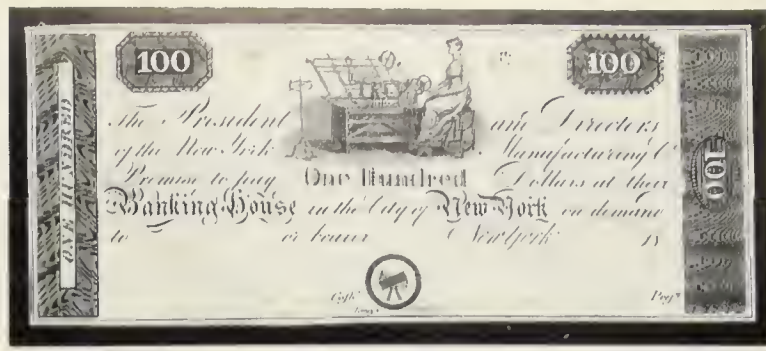 100 100
The President and Directors
of the New York Manufacturing Co
Promise to pay One Hundred Dollars at their
Banking House in the City of New York on demand
to or bearer New York 18
Cashr Presdt
ONE HUNDRED
100